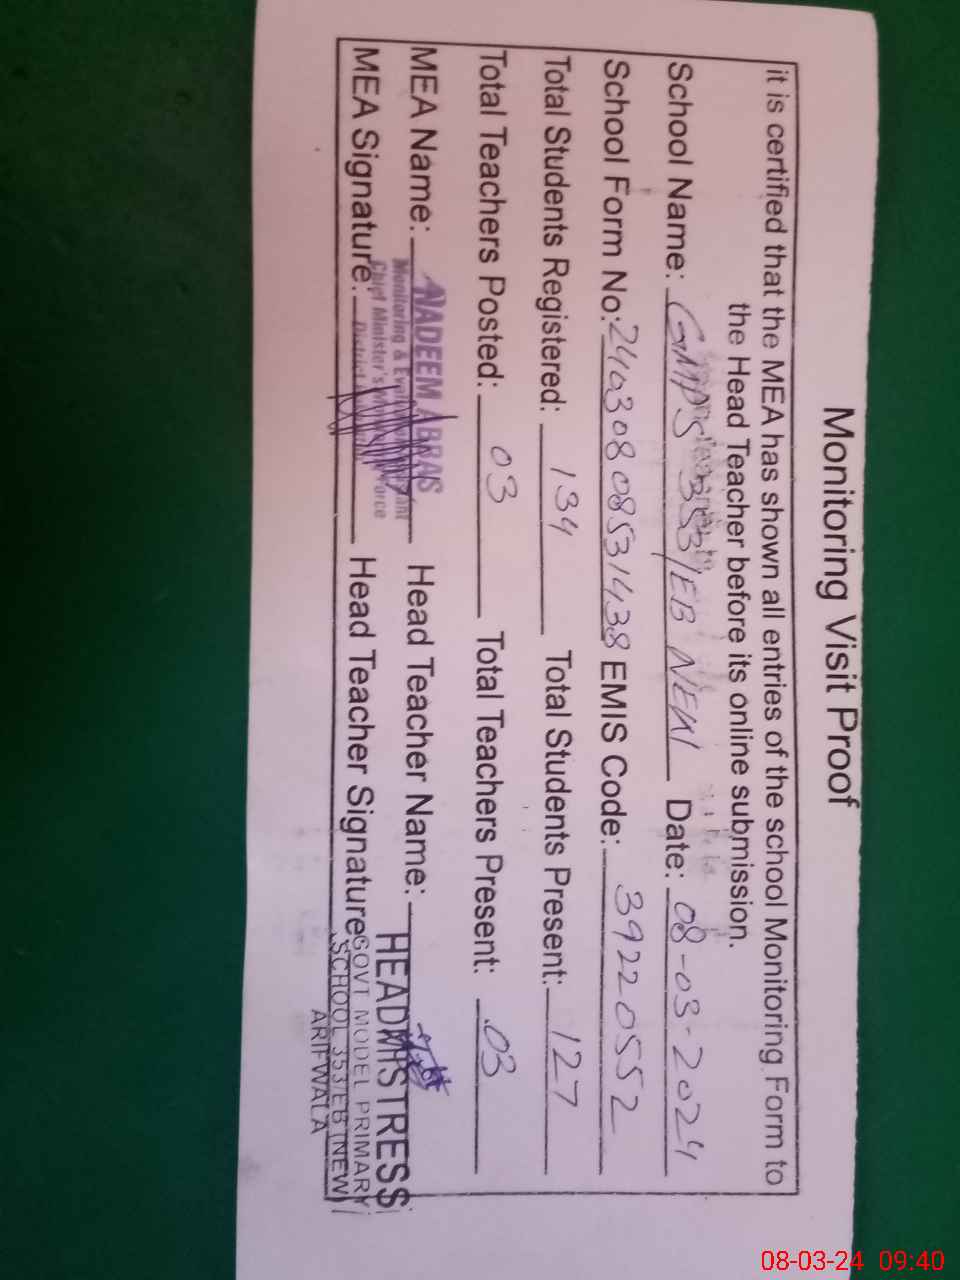 Monitoring Visit Proof
it is certified that the MEA has shown all entries of the school Monitoring Form to
the Head Teacher before its online submission.
School Name: GMPS 353/EB NEW Date: 08-03-2024
School Form No: 24030808531438 EMIS Code: 39220552
Total Students Registered: 134 Total Students Present: 127
Total Teachers Posted: 03 Total Teachers Present: 03
MEA Name: NADEEM ABBAS Head Teacher Name: HEADMISTRESS
Monitoring &
Chief Minister's Force
MEA Signature: District Head Teacher Signature GOVT MODEL PRIMARY
SCHOOL 353/EB (NEW)
ARIFWALA
08-03-24 09:40